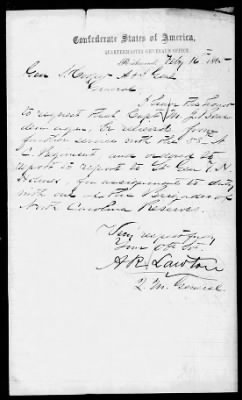 Confederate States of America,
QUARTERMASTER GENERAL'S OFFICE,
Richmond, Feby 16th 1865
Gen S Cooper A & I Gen
General
I have the honor
to request that Capt M J
be relieved from
further service with the 58 N
C Regiment, and ordered to
report to report to Lt Gen T H
Holmes for assignment to duty
with one of the Brigades of
North Carolina Reserves.
Very respectfully
Your Obt Svt
A R Lawton
Q. M. General